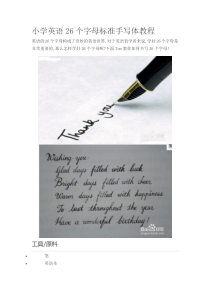 小学英语 26 个字母标准手写体教程
英语的 26 个字母构成了奇妙的英语世界,对于英语初学者来说,学好 26 个字母是
非常重要的,那么怎样学好 26 个字母呢?下面 Tom 教你如何书写 26 个字母!
Thank you
Wishing you
Glad days filled with luck
Bright days filled with cheer,
Warm days filled with happiness
To last throughout the year.
Have a wonderful birthday!
工具/原料
笔
英语本